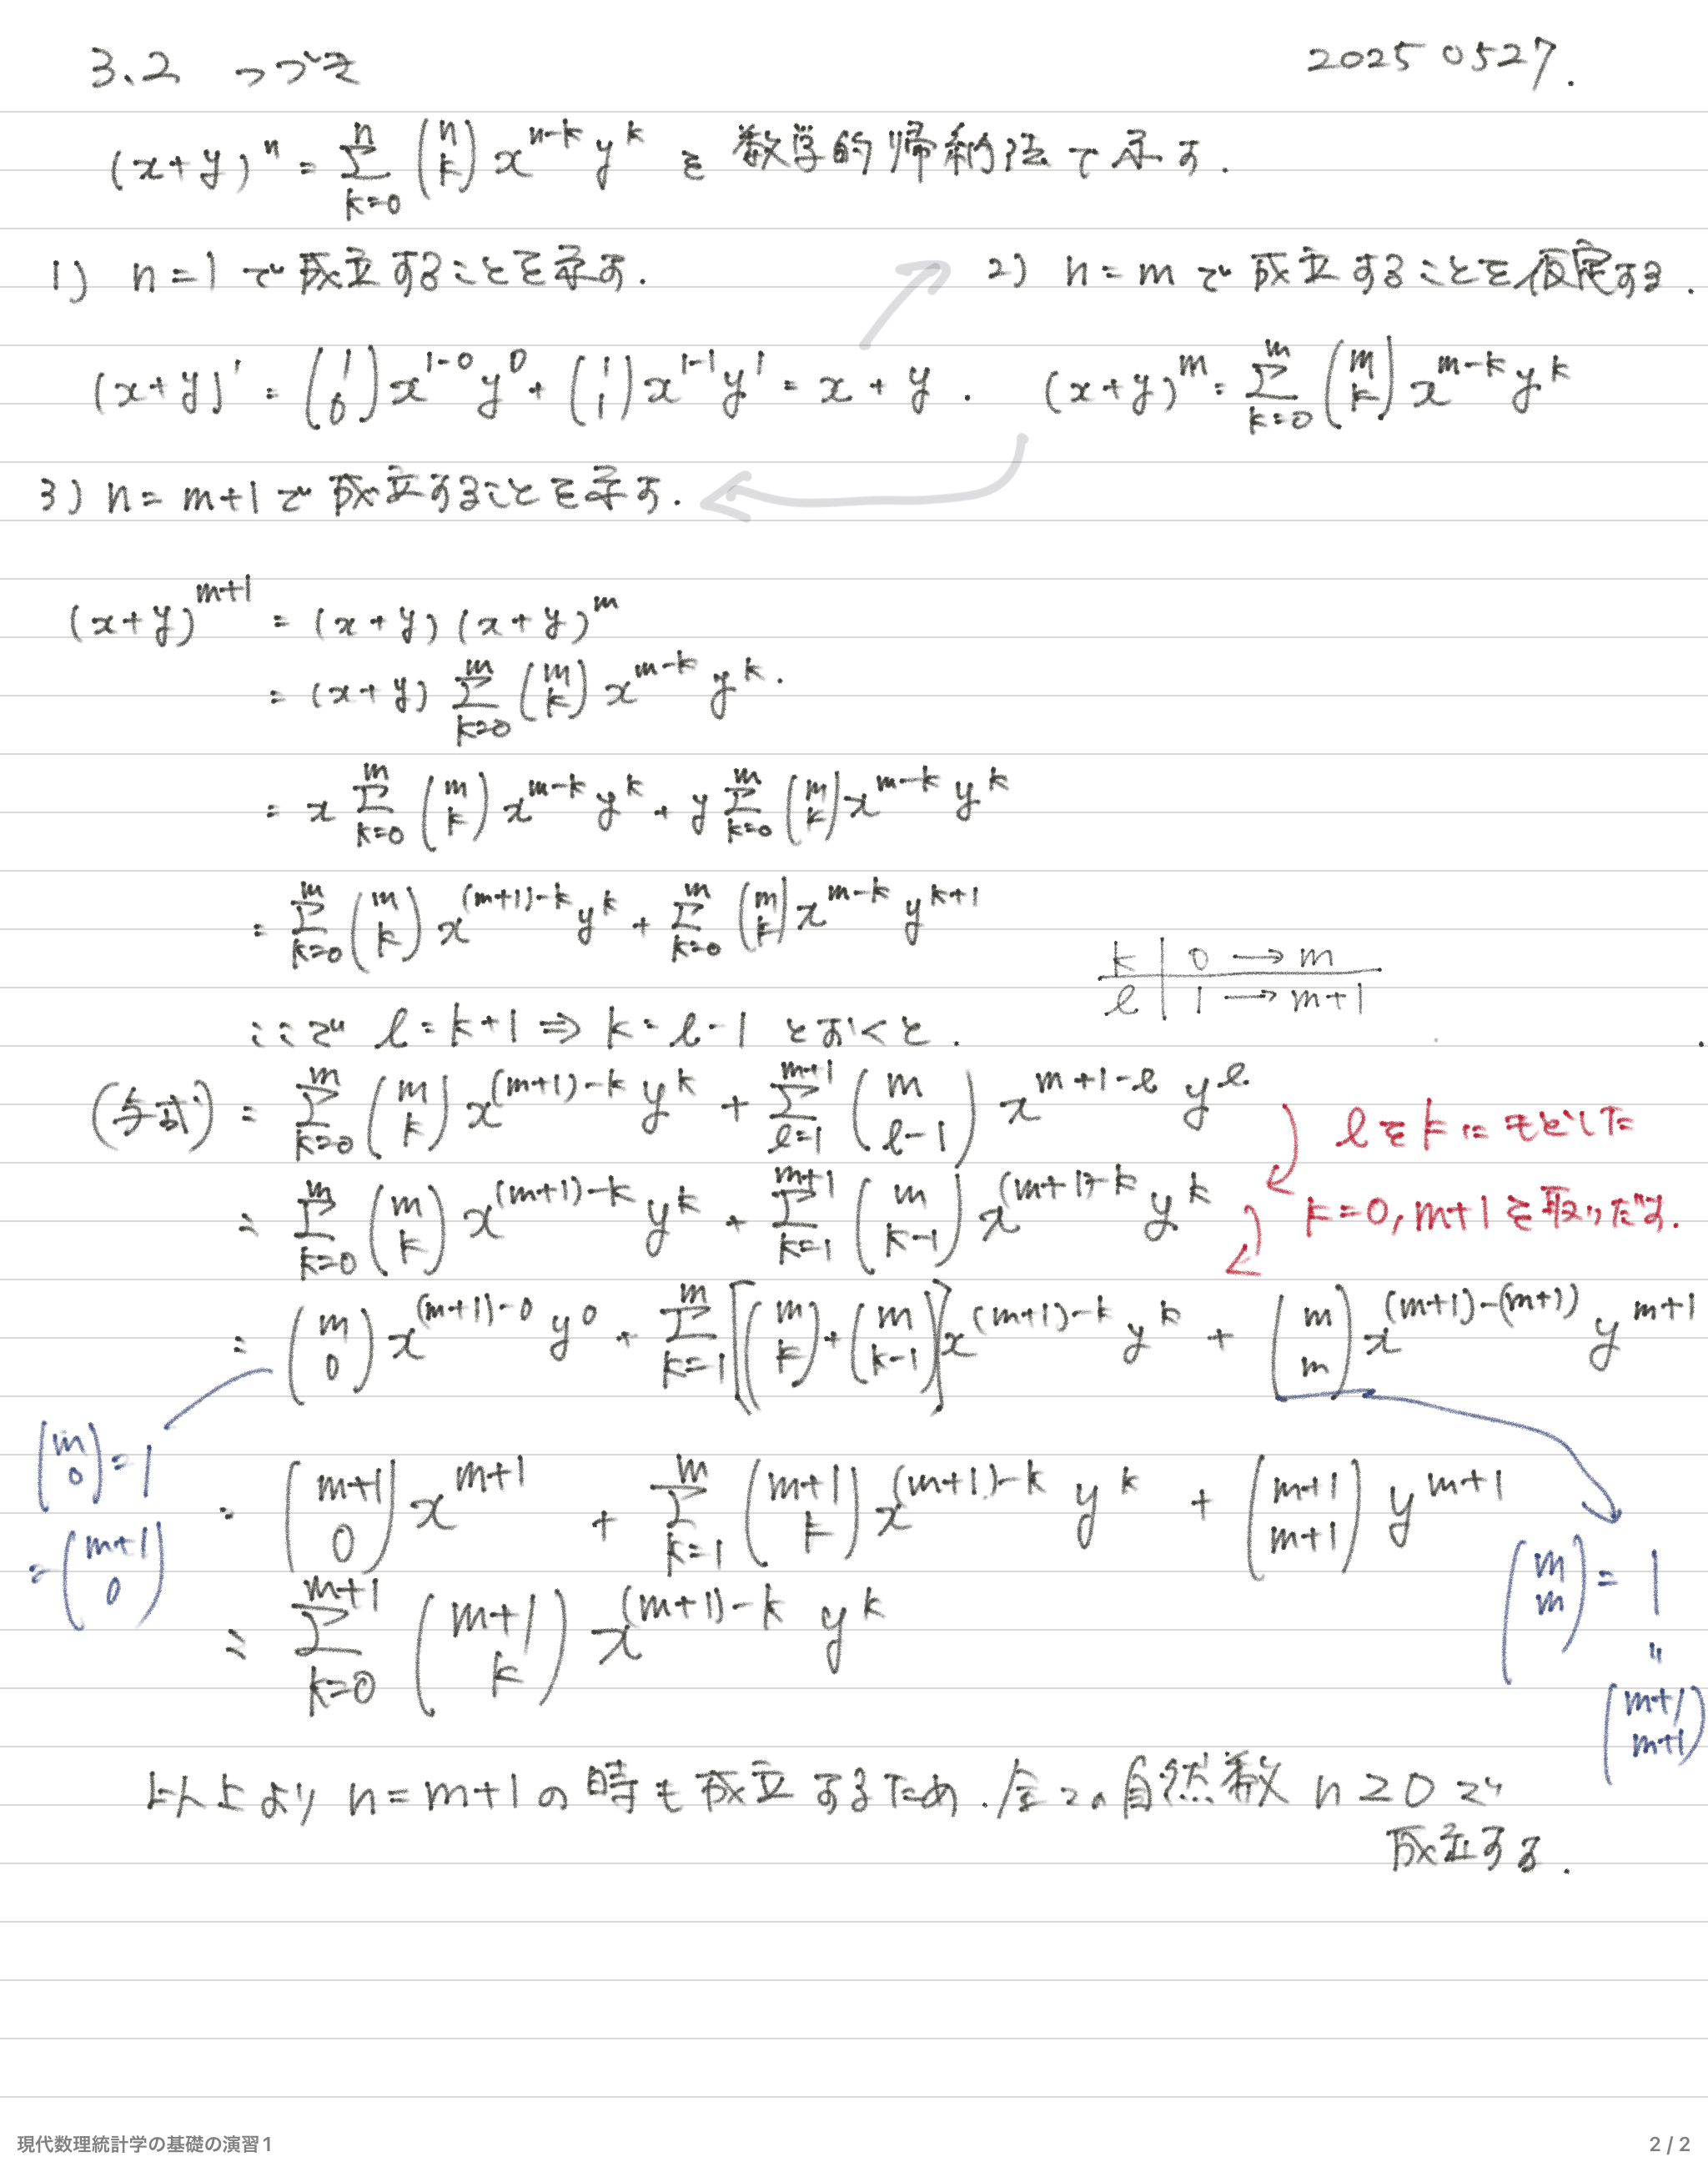 3.2 つづき 20250527.
(x+y)^n = Σ_{k=0}^{n} (n k) x^{n-k} y^k を数学的帰納法で示す.
1) n=1で成立することを示す. 2) n=mで成立することを仮定する.
(x+y)^1 = (1 0) x^{1-0} y^0 + (1 1) x^{1-1} y^1 = x + y. (x+y)^m = Σ_{k=0}^{m} (m k) x^{m-k} y^k
3) n=m+1で成立することを示す.
(x+y)^{m+1} = (x+y)(x+y)^m
= (x+y) Σ_{k=0}^{m} (m k) x^{m-k} y^k.
= x Σ_{k=0}^{m} (m k) x^{m-k} y^k + y Σ_{k=0}^{m} (m k) x^{m-k} y^k
= Σ_{k=0}^{m} (m k) x^{(m+1)-k} y^k + Σ_{k=0}^{m} (m k) x^{m-k} y^{k+1}
k | 0 → m
ℓ | 1 → m+1
ここで ℓ=k+1 ⇒ k=ℓ-1 とおくと.
(与式) = Σ_{k=0}^{m} (m k) x^{(m+1)-k} y^k + Σ_{ℓ=1}^{m+1} (m ℓ-1) x^{m+1-ℓ} y^ℓ
ℓをkにもどした
= Σ_{k=0}^{m} (m k) x^{(m+1)-k} y^k + Σ_{k=1}^{m+1} (m k-1) x^{(m+1)-k} y^k
k=0, m+1を取りだす.
= (m 0) x^{(m+1)-0} y^0 + Σ_{k=1}^{m} [(m k)+(m k-1)] x^{(m+1)-k} y^k + (m m) x^{(m+1)-(m+1)} y^{m+1}
(m 0) = 1
= (m+1 0)
= (m+1 0) x^{m+1} + Σ_{k=1}^{m} (m+1 k) x^{(m+1)-k} y^k + (m+1 m+1) y^{m+1}
(m m) = 1
=
(m+1 m+1)
= Σ_{k=0}^{m+1} (m+1 k) x^{(m+1)-k} y^k
以上より n=m+1の時も成立するため.全ての自然数 n≥0で
成立する.
現代数理統計学の基礎の演習1 2 / 2